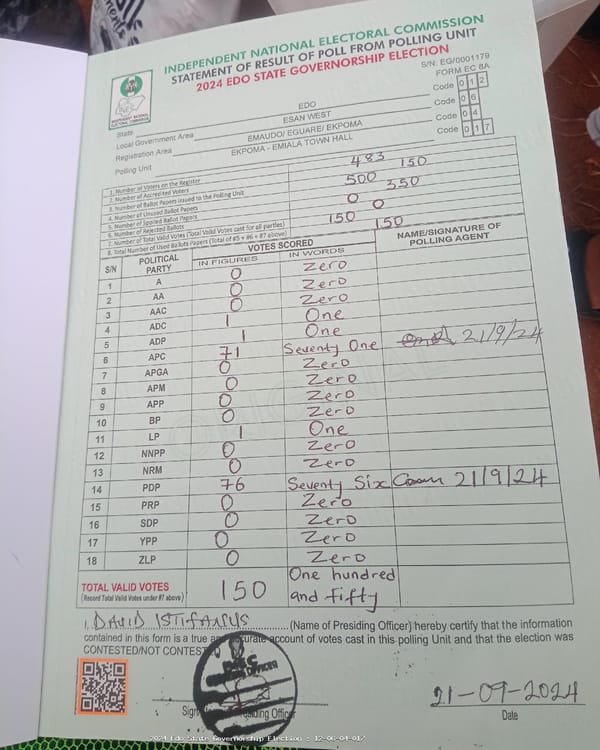 INDEPENDENT NATIONAL ELECTORAL COMMISSION
STATEMENT OF RESULT OF POLL FROM POLLING UNIT
2024 EDO STATE GOVERNORSHIP ELECTION
S/N: EG/0001179
FORM EC 8A
State EDO Code 0 1 2
Local Government Area ESAN WEST Code 0 6
Registration Area EMAUDO/ EGUARE/ EKPOMA Code 0 4
Polling Unit EKPOMA - EMIALA TOWN HALL Code 0 1 7
1. Number of Voters on the Register 483
2. Number of Accredited Voters 150
3. Number of Ballot Papers issued to the Polling Unit 500
4. Number of Unused Ballot Papers 350
5. Number of Spoiled Ballot Papers 0
6. Number of Rejected Ballots 0
7. Number of Total Valid Votes (Total Valid Votes cast for all parties) 150
8. Total Number of Used Ballots Papers (Total of #5 + #6 + #7 above) 150
S/N POLITICAL PARTY VOTES SCORED NAME/SIGNATURE OF POLLING AGENT
IN FIGURES IN WORDS
1 A 0 Zero
2 AA 0 Zero
3 AAC 0 Zero
4 ADC 1 One
5 ADP 1 One
6 APC 71 Seventy One 21/9/24
7 APGA 0 Zero
8 APM 0 Zero
9 APP 0 Zero
10 BP 0 Zero
11 LP 1 One
12 NNPP 0 Zero
13 NRM 0 Zero
14 PDP 76 Seventy Six 21/9/24
15 PRP 0 Zero
16 SDP 0 Zero
17 YPP 0 Zero
18 ZLP 0 Zero
TOTAL VALID VOTES 150 One hundred
(Record Total Valid Votes under #7 above) and fifty
I, DAVID ISTIFANUS (Name of Presiding Officer) hereby certify that the information
contained in this form is a true and accurate account of votes cast in this polling Unit and that the election was
CONTESTED/NOT CONTESTED
21-09-2024
Date
2024 Edo State Governorship Election : 12-06-04-017